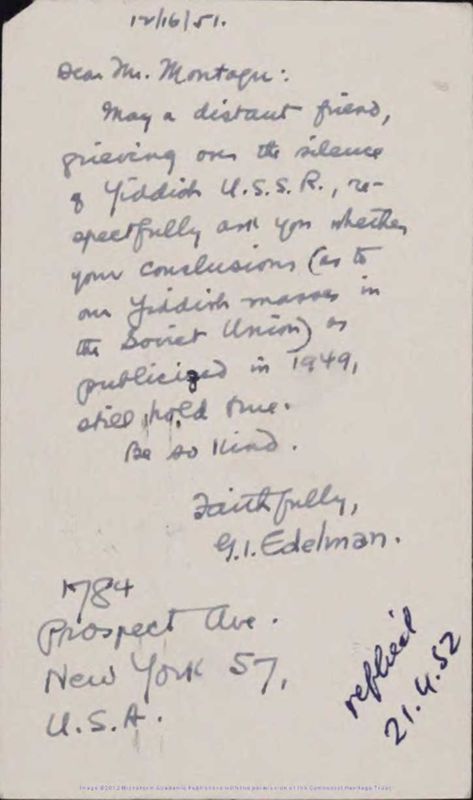 12/16/51.
Dear Mr. Montagu:
May a distant friend,
grieving over the silence
of Yiddish U.S.S.R., re-
spectfully ask you whether
your conclusions (as to
our Yiddish masses in
the Soviet Union) as
publicized in 1949,
still hold true.
Be so kind.
Faithfully,
G.I. Edelman.
1784
Prospect Ave.
New York 57,
U.S.A.
replied
21.4.52
Image ©2012 Microform Academic Publishers with the permission of the Communist Heritage Trust